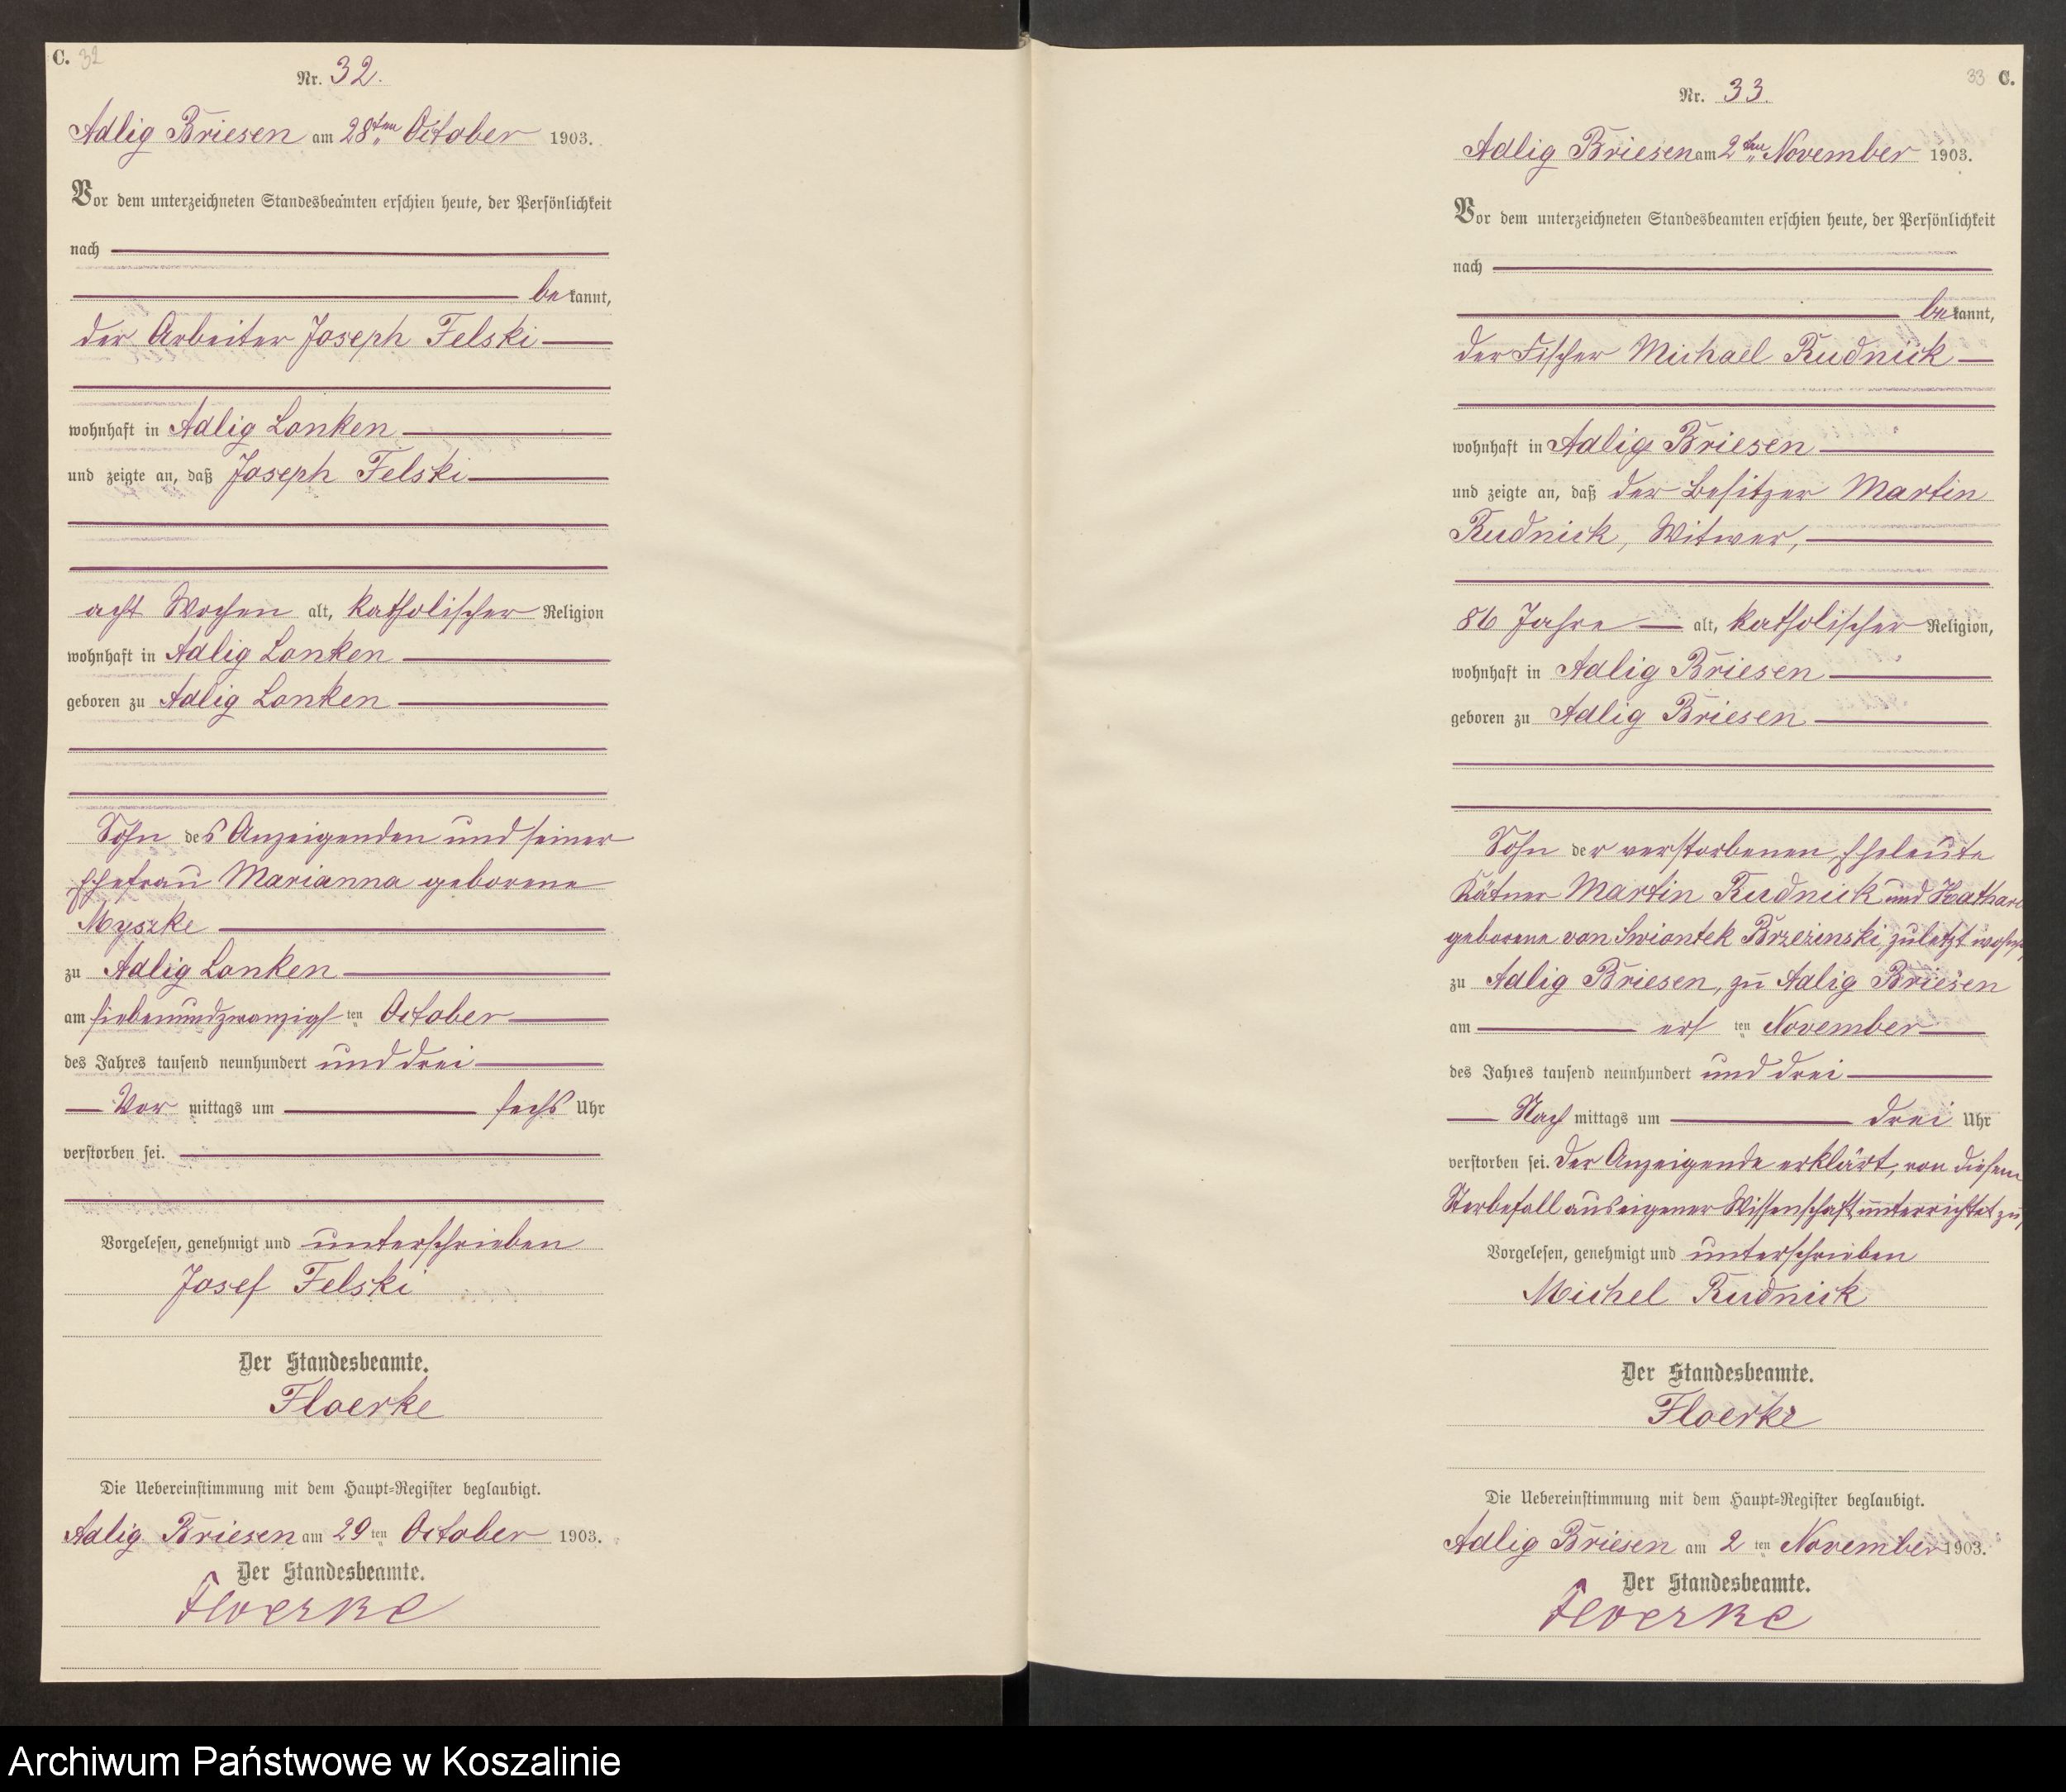 C. 32
Nr. 32.
Adlig Briesen am 28ten October 1903.
Vor dem unterzeichneten Standesbeamten erschien heute, der Persönlichkeit
nach
bekannt,
der Arbeiter Joseph Felski
wohnhaft in Adlig Lonken
und zeigte an, daß Joseph Felski
acht Wochen alt, katholischer Religion
wohnhaft in Adlig Lonken
geboren zu Adlig Lonken
Sohn des Anzeigenden und seiner
Ehefrau Marianna geborene
Myszke
zu Adlig Lonken
am siebenundzwanzigsten October
des Jahres tausend neunhundert und drei
Vor mittags um sechs Uhr
verstorben sei.
Vorgelesen, genehmigt und unterschrieben
Josef Felski
Der Standesbeamte.
Floerke
Die Uebereinstimmung mit dem Haupt-Register beglaubigt.
Adlig Briesen am 29ten October 1903.
Der Standesbeamte.
Floerke
33 C.
Nr. 33.
Adlig Briesen am 2ten November 1903.
Vor dem unterzeichneten Standesbeamten erschien heute, der Persönlichkeit
nach
bekannt,
der Fischer Michael Rudnick
wohnhaft in Adlig Briesen
und zeigte an, daß der Besitzer Martin
Rudnick, Witwer,
86 Jahre alt, katholischer Religion,
wohnhaft in Adlig Briesen
geboren zu Adlig Briesen
Sohn der verstorbenen Eheleute
Kätner Martin Rudnick und Kathar
geborene von Swiontek Brzezinski, zuletzt wohnh
zu Adlig Briesen, zu Adlig Briesen
am ersten November
des Jahres tausend neunhundert und drei
Nach mittags um drei Uhr
verstorben sei. Der Anzeigende erklärt, von diesem
Sterbefall aus eigener Wissenschaft unterrichtet zu
Vorgelesen, genehmigt und unterschrieben
Michel Rudnick
Der Standesbeamte.
Floerke
Die Uebereinstimmung mit dem Haupt-Register beglaubigt.
Adlig Briesen am 2ten November 1903.
Der Standesbeamte.
Floerke
Archiwum Państwowe w Koszalinie